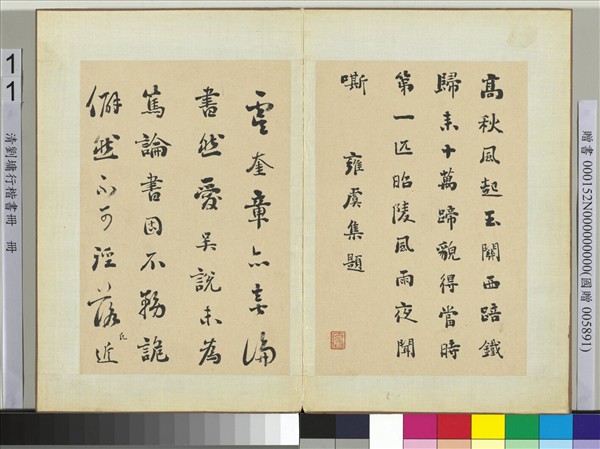 高秋風起玉關西踣鐵
歸來十萬蹄貌得當時
第一匹昭陵風雨夜聞
嘶 雍虞集題
虞奎章亦喜論
書然愛吳說未為
篤論書固不務詭
僻然不可徑落凡近
11
清劉墉行楷書冊 冊
贈書 000152N000000000(國贈 005891)